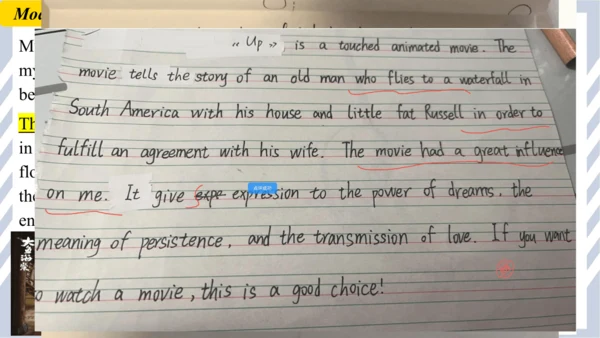 Mo
M
my
be
Th
in
flo
the
en
《 Up 》 is a touched animated movie. The
movie tells the story of an old man who flies to a waterfall in
South America with his house and little fat Russell in order to
fulfill an agreement with his wife. The movie had a great influence
on me. It give expe expression to the power of dreams, the
meaning of persistence, and the transmission of love. If you want
o watch a movie, this is a good choice!